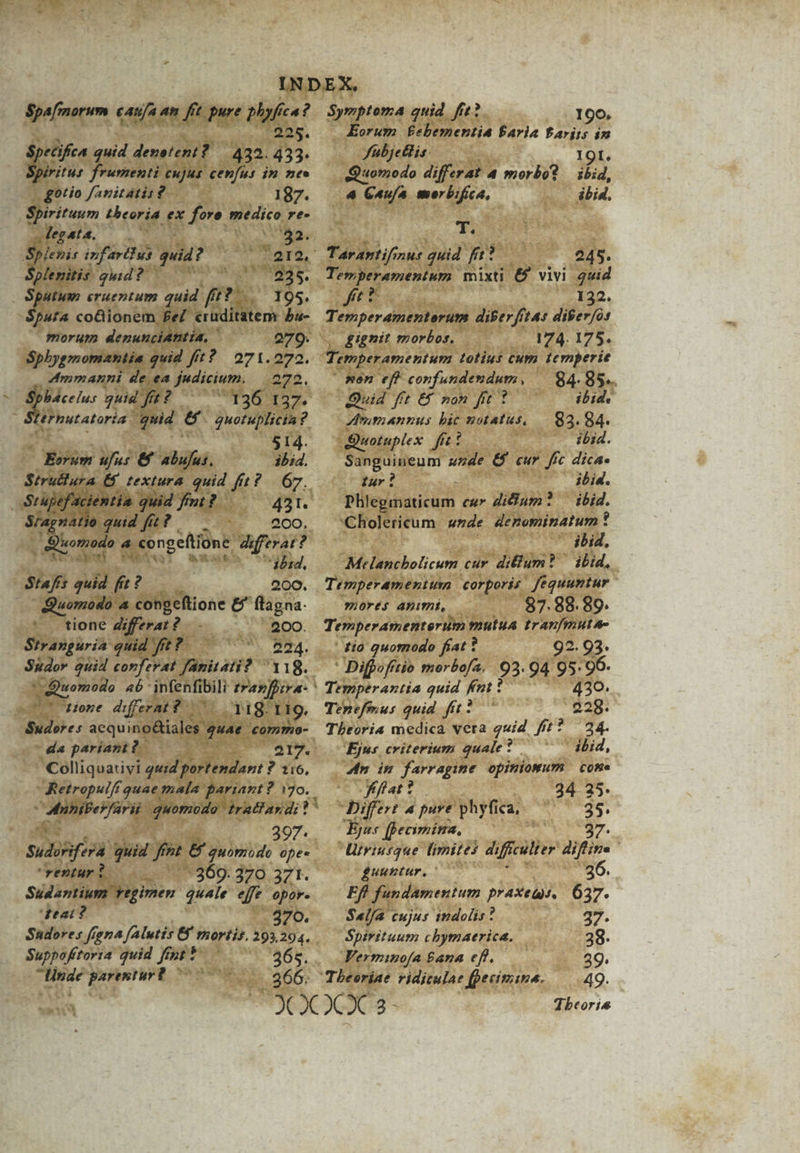 INDEX.
Spasmorum causa an sit pure physica?
225.
Specifica quid denotent? 432. 433.
Spiritus frumenti cujus census in ne-
gotio sanitatis? 187.
Spirituum theoria ex foro medico re-
legata. 32.
Splenis infarctus quid? 212.
Splenitis quid? 235.
Sputum cruentum quid sit? 195.
Sputa coctionem vel cruditatem hu-
morum denunciantia. 279.
Sphygmomantia quid sit? 271. 272.
Ammanni de ea judicium. 272.
Sphacelus quid sit? 136 137.
Sternutatoria quid & quotuplicia?
514.
Eorum usus & abusus. ibid.
Structura & textura quid sit? 67.
Stupefacientia quid sint? 431.
Stagnatio quid sit? 200.
Quomodo a congestione differat?
ibid.
Stasis quid sit? 200.
Quomodo a congestione & stagna-
tione differat? 200.
Stranguria quid sit? 224.
Sudor quid conferat sanitati? 118.
Quomodo ab insensibili transpira-
tione differat? 118. 119.
Sudores aequinoctiales quae commo-
da pariant? 217.
Colliquativi quid portendant? 216.
Retropulsi quae mala pariant? 170.
Anniversarii quomodo tractandi?
397.
Sudorifera quid sint & quomodo ope-
rentur? 369. 370 371.
Sudantium regimen quale esse opor-
teat? 370.
Sudores signa salutis & mortis. 293.294.
Suppositoria quid sint? 365.
Unde parentur? 366.
Symptoma quid sit? 190.
Eorum vehementia varia variis in
subjectis 191.
Quomodo differat a morbo? ibid.
a Causa morbifica. ibid.
T.
Tarantismus quid sit? 245.
Temperamentum mixti & vivi quid
sit? 132.
Temperamentorum diversitas diversos
gignit morbos. 174. 175.
Temperamentum totius cum temperie
non est confundendum. 84. 85.
Quid sit & non sit? ibid.
Ammannus hic notatus. 83. 84.
Quotuplex sit? ibid.
Sanguineum unde & cur sic dica-
tur? ibid.
Phlegmaticum cur dictum? ibid.
Cholericum unde denominatum?
ibid.
Melancholicum cur dictum? ibid.
Temperamentum corporis sequuntur
mores animi. 87. 88. 89.
Temperamentorum mutua transmuta-
tio quomodo fiat? 92. 93.
Dispositio morbosa. 93. 94 95. 96.
Temperantia quid sint? 430.
Tenesmus quid sit? 228.
Theoria medica vera quid sit? 34.
Ejus criterium quale? ibid.
An in farragine opinionum con-
sistat? 34 35.
Differt a pure physica. 35.
Ejus specimina. 37.
Utriusque limites difficulter distin-
guuntur. 36.
Est fundamentum praxeως. 637.
Salsa cujus indolis? 37.
Spirituum chymaerica. 38.
Verminosa vana est. 39.
Theoriae ridiculae specimina. 49.
)( )( )( )( 3 Theoria